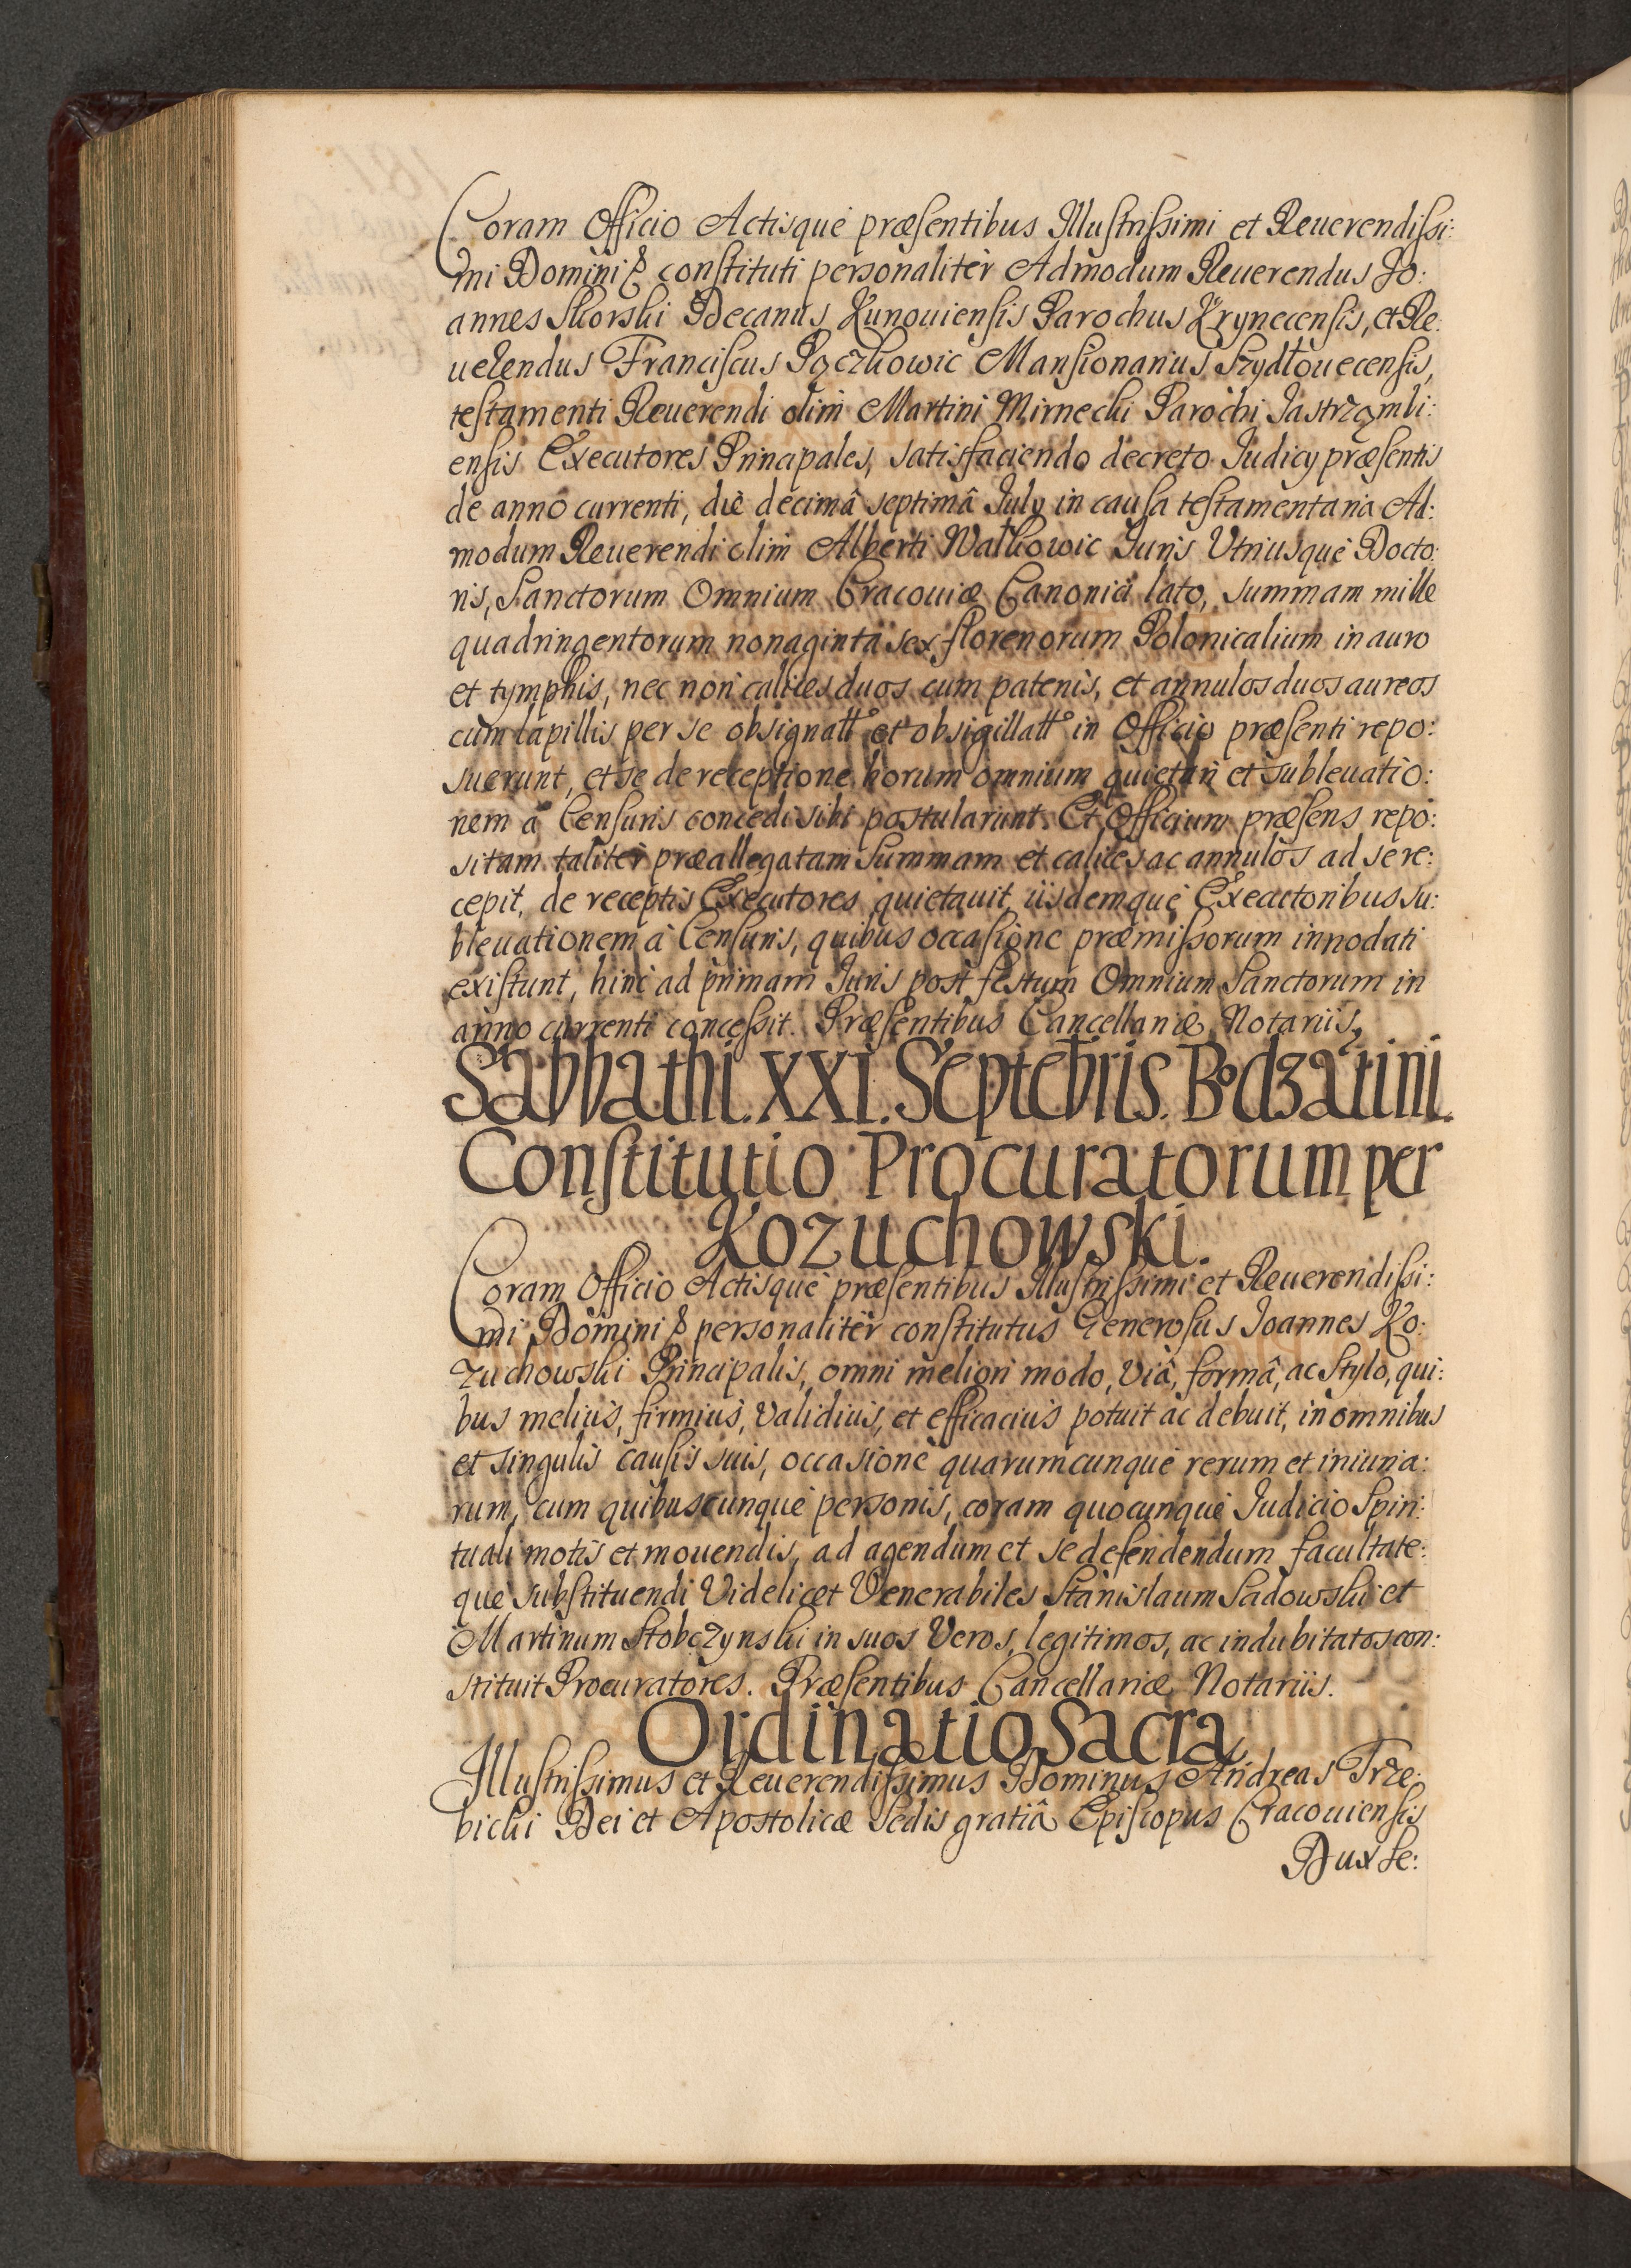 Coram Officio Actisque præsentibus Illustrissimi et Reuerendissi:
mi Domini &c constituti personaliter Admodum Reuerendus Jo:
annes Skorski Decanus Kunouiensis Parochus Krynecensis, et Re:
uerendus Franciscus Pączkowic Mansionarius Szydłouecensis,
testamenti Reuerendi olim Martini Mirnecki Parochi Jastrząmbi:
ensis Executores Principales, satisfaciendo decreto Judicy præsentis
de anno currenti, die decimâ septimâ July in causa testamentaria Ad:
modum Reuerendi olim Alberti Wałkowic Juris Vtriusque Docto:
ris, Sanctorum Omnium Cracouiæ Canonici lato, summam mille
quadringentorum nonaginta sex florenorum Polonicalium in auro
et tymphis, nec non calices duos cum patenis, et annulos duos aureos
cum lapillis per se obsignatt et obsigillatt in Officio præsenti repo:
suerunt, et se de receptione horum omnium quietari et subleuatio:
nem à Censuris concedi sibi postularunt. Et Officium præsens repo:
sitam taliter præallegatam summam et calices ac annulos ad se re:
cepit, de receptis Executores quietauit, iisdemque Execttoribus su:
bleuationem à Censuris, quibus occasione præmissorum innodati
existunt, hinc ad primam Juris post festum Omnium Sanctorum in
anno currenti concessit. Præsentibus Cancellariæ Notariis.
Sabbathi. XXI. Septebris. Bodzatini.
Constitutio Procuratorum per
Kozuchowski.
Coram Officio Actisque præsentibus Illustrissimi et Reuerendissi:
mi Domini &c personaliter constitutus Generosus Joannes Ko:
zuchowski Principalis, omni meliori modo, viâ, formâ, ac stylo, qui:
bus melius, firmius, validius, et efficacius potuit ac debuit, in omnibus
et singulis causis suis, occasione quarumcunque rerum et iniuria:
rum, cum quibuscunque personis, coram quocunque Judicio Spiri:
tuali motis et mouendis, ad agendum et se defendendum facultate:
que substituendi Videlicet Venerabiles Stanislaum Sadowski et
Martinum Stobczynski in suos Veros, legitimos, ac indubitatos con:
stituit Procuratores. Præsentibus Cancellariæ Notariis.
Ordinatio Sacra
Illustrissimus et Reuerendissimus Dominus Andreas Trze:
bicki Dei et Apostolicæ Sedis gratiâ Episcopus Cracouiensis
Dux Se: